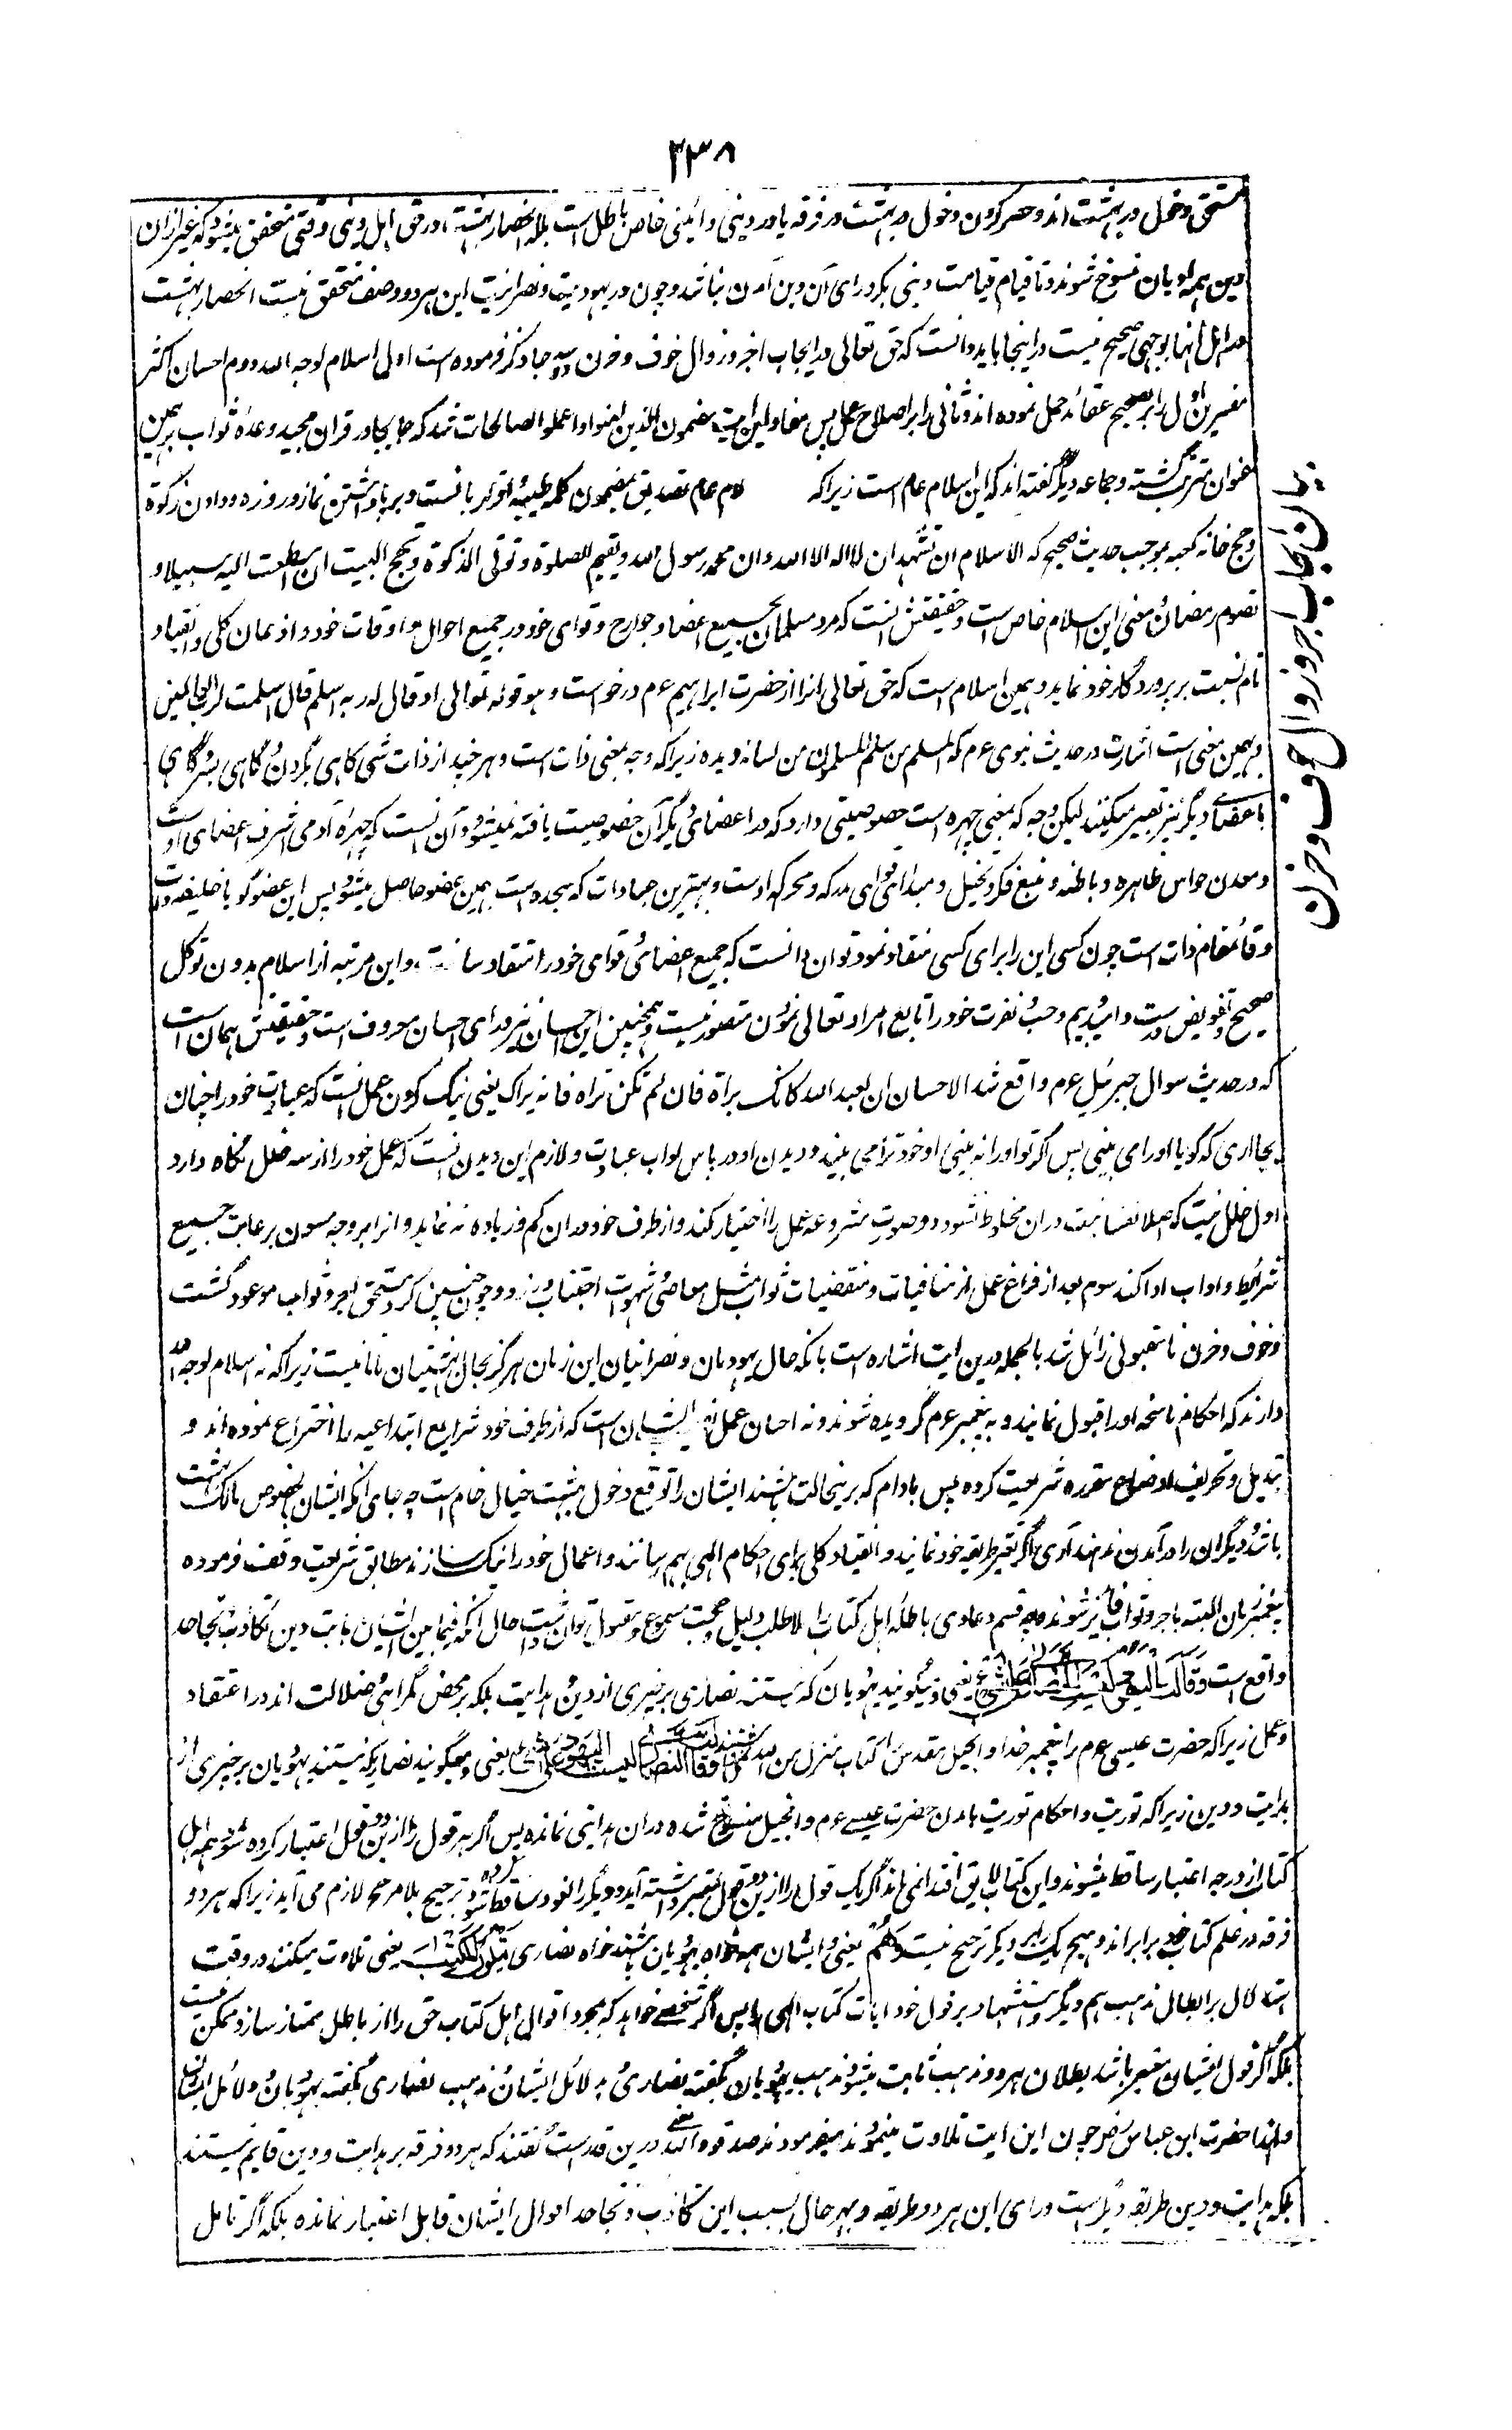 ۳۳۸
مستحق دخول در بهشت اند و حصر کردن دخول در بهشت در فرقه یا در دینی و آئینی خاص باطل است بلکه انحصار بهشت در حق اهل دینی وقتی متحقق میشود که غیر ازان
دین همه ادیان منسوخ شوند و تا قیام قیامت دینی دیگر ورای آن دین آمدن نباشد و چون در یهودیت و نصرانیت این هر دو وصف متحقق نیست انحصار بهشت
در اهل انها بوجهی صحیح نیست در اینجا باید دانست که حق تعالی در ایجاب اجر و زوال خوف و حزن دو چیز ذکر فرموده است اول اسلام لوجه الله دوم احسان اکثر
مفسرین اول را بر تصحیح عقائد حمل نموده اند و ثانی را بر اصلاح عمل پس مفاد این ایت مضمون الذین امنوا و عملوا الصالحات شد که جا بجا در قران مجید وعدهٔ ثواب بر همین
عنوان مترتب گشته و جماعه دیگر گفته اند که این اسلام عام است زیرا که لام عام تصدیق بمضمون کلمه طیبه و اقرار بانست و بر پا داشتن نماز و روزه و دادن زکوة
و حج خانه کعبه بموجب حدیث صحیح که الاسلام ان تشهد ان لا اله الا الله و ان محمد رسول الله و تقیم الصلوة و توتی الزکوة و تحج البیت ان استطعت الیه سبیلا و
تصوم رمضان معنی این اسلام خاص است و حقیقتش انست که مرد مسلمان بجمیع اعضا و جوارح و قوای خود در جمیع احوال و اوقات خود و اذعان کلی و انقیاد
تام نسبت بر پروردگار خود نماید و همین اسلام است که حق تعالی انرا از حضرت ابراهیم عم درخواست و هو قوله تعالی اذ قال له ربه اسلم قال اسلمت لرب العالمین
و بهمین معنی است اشارت در حدیث نبوی عم که المسلم من سلم المسلمون من لسانه و یده زیرا که وجه بمعنی ذات است و هر چند از ذات شی گاهی بگردن و گاهی بسر و گاهی
باعضای دیگر نیز تعبیر میکنند لیکن وجه که بمعنی چهره است خصوصیتی دارد که در اعضای دیگر آن خصوصیت یافته نمیشود و آن انست که چهرهٔ آدمی اشرف اعضای او است
و معدن حواس ظاهره و باطنه و منبع فکر و تخیل و مبدای قوای مدرکه و محرکه اوست و بهترین عبادات که سجده است بهمین عضو حاصل میشود پس این عضو گویا خلیفه ذات
و قائمقام ذات است چون کسی این را برای کسی منقاد نمود توان دانست که جمیع اعضای و قوای خود را منقاد ساخت و این مرتبه از اسلام بدون توکل
صحیح و تفویض درست و امید و بیم و حب و نفرت خود را تابع امر او تعالی نمودن متصور نیست و همچنین این احسان نیز ورای احسان معروف است و حقیقتش همان است
که در حدیث سوال جبرئیل عم واقع شد الاحسان ان تعبد الله کانک تراه فان لم تکن تراه فانه یراک یعنی نیک کردن عمل انست که عبادت خود را چنان
بجا اری که گویا او را می بینی پس اگر تو او را نه بینی او خود ترا می بیند و دیدن او در پاس اداب عبادت و لازم این دیدن انست که عمل خود را از سه خلل نگاه دارد
اول خلل نیت که اصلا نفسانیت دران مخلوط نشود دوم صورت مشروعه عمل را اختیار کند و از طرف خود دران کم و زیاده نه نماید و انرا بر وجه مسنون برعایت جمیع
شرائط و اداب ادا کند سوم بعد از فراغ عمل از منافیات و منقضیات ثواب مثل معاصی و شهوت اجتناب ورزد و چون چنین کرد مستحق اجر و ثواب موعود گشت
و خوف و حزن نا مقبولی زائل شد بالجمله درین ایت اشاره است بانکه حال یهودیان و نصرانیان این زمان هرگز بحال بهشتیان مانا نیست زیرا که نه اسلام لوجه الله
دارند که احکام ناسخه او را قبول نمایند و به پیغمبر عم گرویده شوند و نه احسان عمل ایشان است که از طرف خود شرایع ابتداعیه را اختراع نموده اند و
تبدیل و تحریف اوضاع مقرره شریعت کرده پس مادام که برین حالت باشند ایشان را توقع دخول بهشت خیال خام است چه جای انکه ایشان بخصوص مالک بهشت
باشند و دیگران را در آمدن ندهند آری اگر تغیر طریقه خود نمایند و انقیاد کلی برای احکام الهی بهم رسانند و اعمال خود را نیک سازند مطابق شریعت وقت فرموده
پیغمبر زمان البته باجر و ثواب فائز شوند و چه قسم دعاوی باطله اهل کتاب را بلا طلب دلیل و حجت مسموع و مقبول توان داشت حال انکه فیما بین ایشان بابت دین تکاذب و تجاحد
واقع است وقالت الیهود لیست النصاری علی شیء یعنی و میگویند یهودیان که نیستند نصاری بر چیزی از دین و هدایت بلکه بر محض گمراهی و ضلالت اند در اعتقاد
و عمل زیرا که حضرت عیسی عم را پیغمبر خدا و انجیل مقدس را کتاب منزل من الله میدانند وقالت النصاری لیست الیهود علی شیء یعنی و میگویند نصاری که نیستند یهودیان بر چیزی از
هدایت و دین زیرا که توریت و احکام توریت بامدن حضرت عیسے عم و انجیل منسوخ شده دران هدایتی نمانده پس اگر هر دو قول را ازین دو قول اعتبار کرده شود همه اهل
کتاب از درجه اعتبار ساقط میشوند و این کتاب لایق اقتدا نمی ماند و اگر یک قول را ازین دو قول معتبر داشته آید و دیگر را لغو و ساقط کرده شود ترجیح بلا مرجح لازم می آید زیرا که هر دو
فرقه در علم کتاب خود برابر اند و هیچ یک را بر دیگر ترجیح نیست وهم یعنی و ایشان همه خواه یهودیان باشند خواه نصاری یتلون الکتب یعنی تلاوت میکنند در وقت
استدلال بر ابطال مذهب هم دیگر و استشهاد بر قول خود ایات کتاب الهی را پس اگر شخصے خواهد که بمجرد اقوال اهل کتاب حق را از باطل ممتاز سازد ممکن نیست
بلکه اگر قول ایشان معتبر باشد بطلان هر دو مذهب ثابت میشود مذهب یهودیان بگفته نصاری و دلائل ایشان و مذهب نصاری بگفته یهودیان و دلائل ایشان
و لهذا حضرت ابن عباس رض چون این ایت تلاوت مینمودند میفرمودند صدقوا والله یعنے درین قدر راست گفتند که هر دو فرقه بر هدایت و دین قایم نیستند
بلکه هدایت و دین طریقه دیگر است ورای این هر دو طریقه و بهر حال بسبب این تکاذب و تجاحد اقوال ایشان قابل اعتبار نمانده بلکه اگر تامل
بیان ایجاب اجر و زوال خوف و حزن